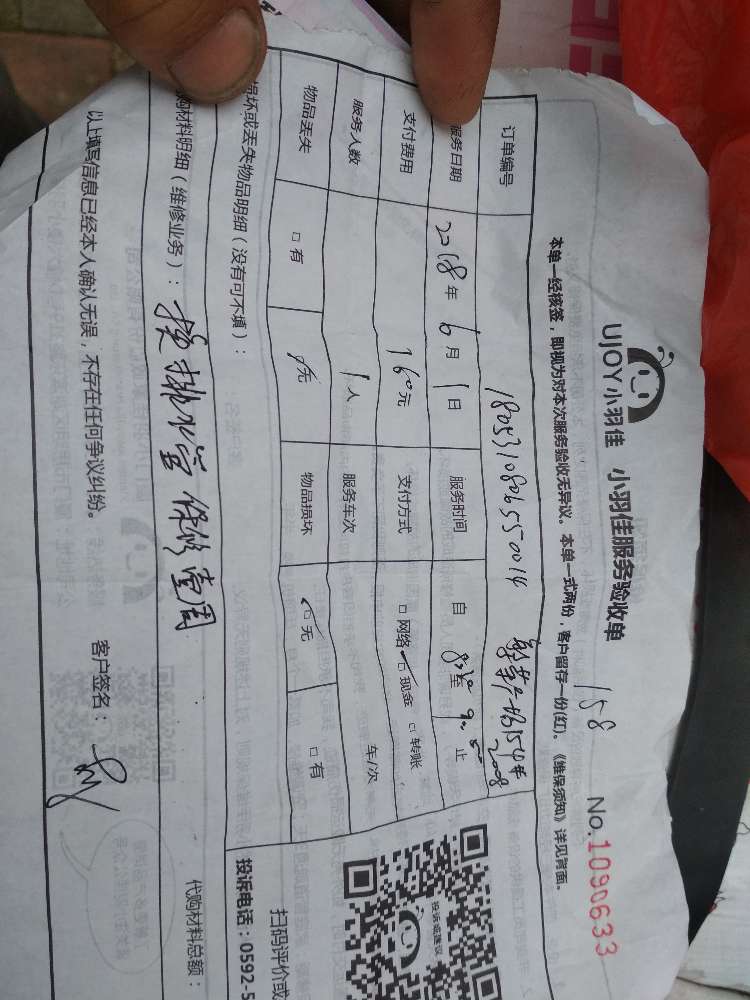 UJOY小羽佳 小羽佳服务验收单 158 No.1090633
本单一经核签，即视为对本次服务验收无异议。本单一式两份，客户留存一份(红)。《维保须知》详见背面。
订单编号 1805310806550014 154# 2008
服务日期 2018年6月1日 服务时间 自 8:30 至 9: 止
支付费用 160元 支付方式 □网络 现金 □转账
服务人数 1人 服务车次 车/次
物品丢失 □有 无 物品损坏 无 □有
损坏或丢失物品明细（没有可不填）：
购材料明细（维修业务）：换排水管 保修壹周 代购材料总额：
以上填写信息已经本人确认无误，不存在任何争议纠纷。 客户签名：
扫码评价或
投诉电话：0592-5
投诉或建议